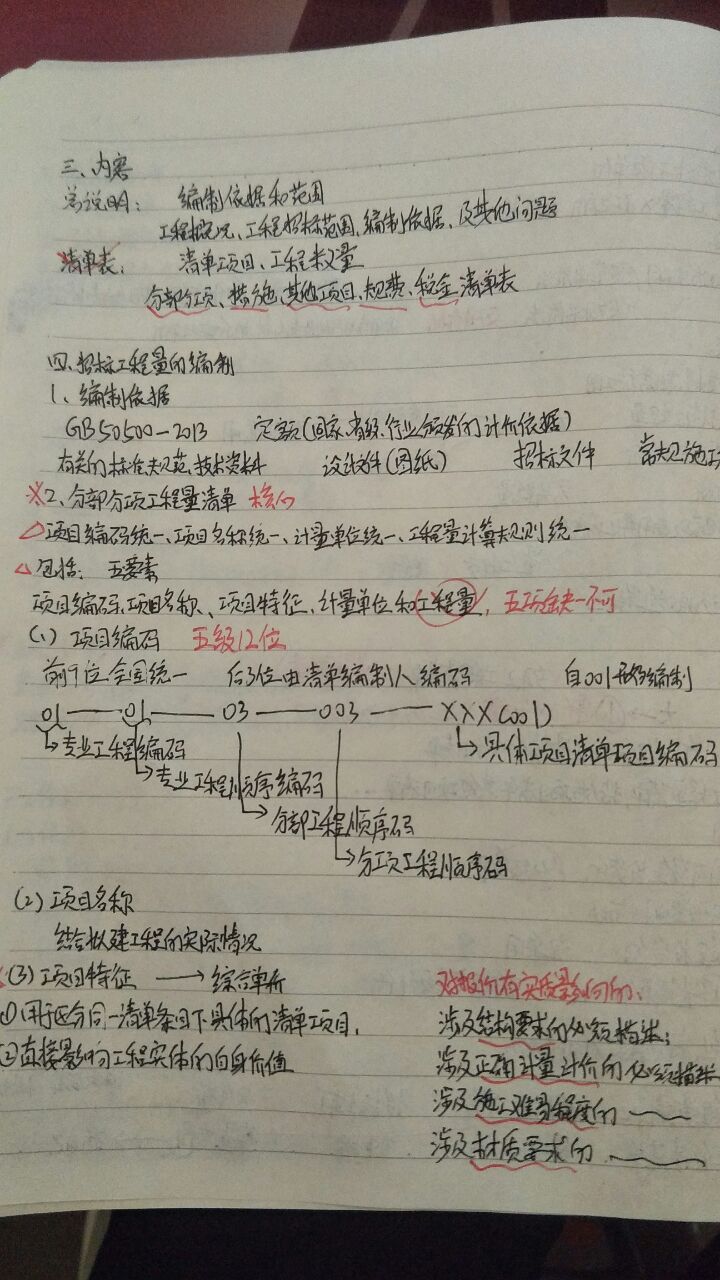 三、内容
总说明: 编制依据和范围
工程概况、工程招标范围、编制依据、及其他问题
清单表: 清单项目、工程数量
分部分项、措施、其他项目、规费、税金清单表
四、招标工程量的编制
1、编制依据
GB50500-2013 定额(国家、省级、行业颁发的计价依据)
有关的标准规范、技术资料 设计文件(图纸) 招标文件 常规施工
※2、分部分项工程量清单 核心
△项目编码统一、项目名称统一、计量单位统一、工程量计算规则统一
△包括: 五要素
项目编码、项目名称、项目特征、计量单位和工程量, 五项缺一不可
(1) 项目编码 五级12位
前9位全国统一 后3位由清单编制人编码 自001开始编制
01——01——03——003——XXX(001)
→具体项目清单项目编码
→专业工程编码
→专业工程顺序编码
→分部工程顺序码
→分项工程顺序码
(2) 项目名称
结合拟建工程的实际情况
(3) 项目特征 → 综合单价 对报价有实质影响的:
①用于区分同一清单条目下具体的清单项目. 涉及结构要求的必须描述;
②直接影响工程实体的自身价值 涉及正确计量计价的必须描述
涉及施工难易程度的
涉及材质要求的